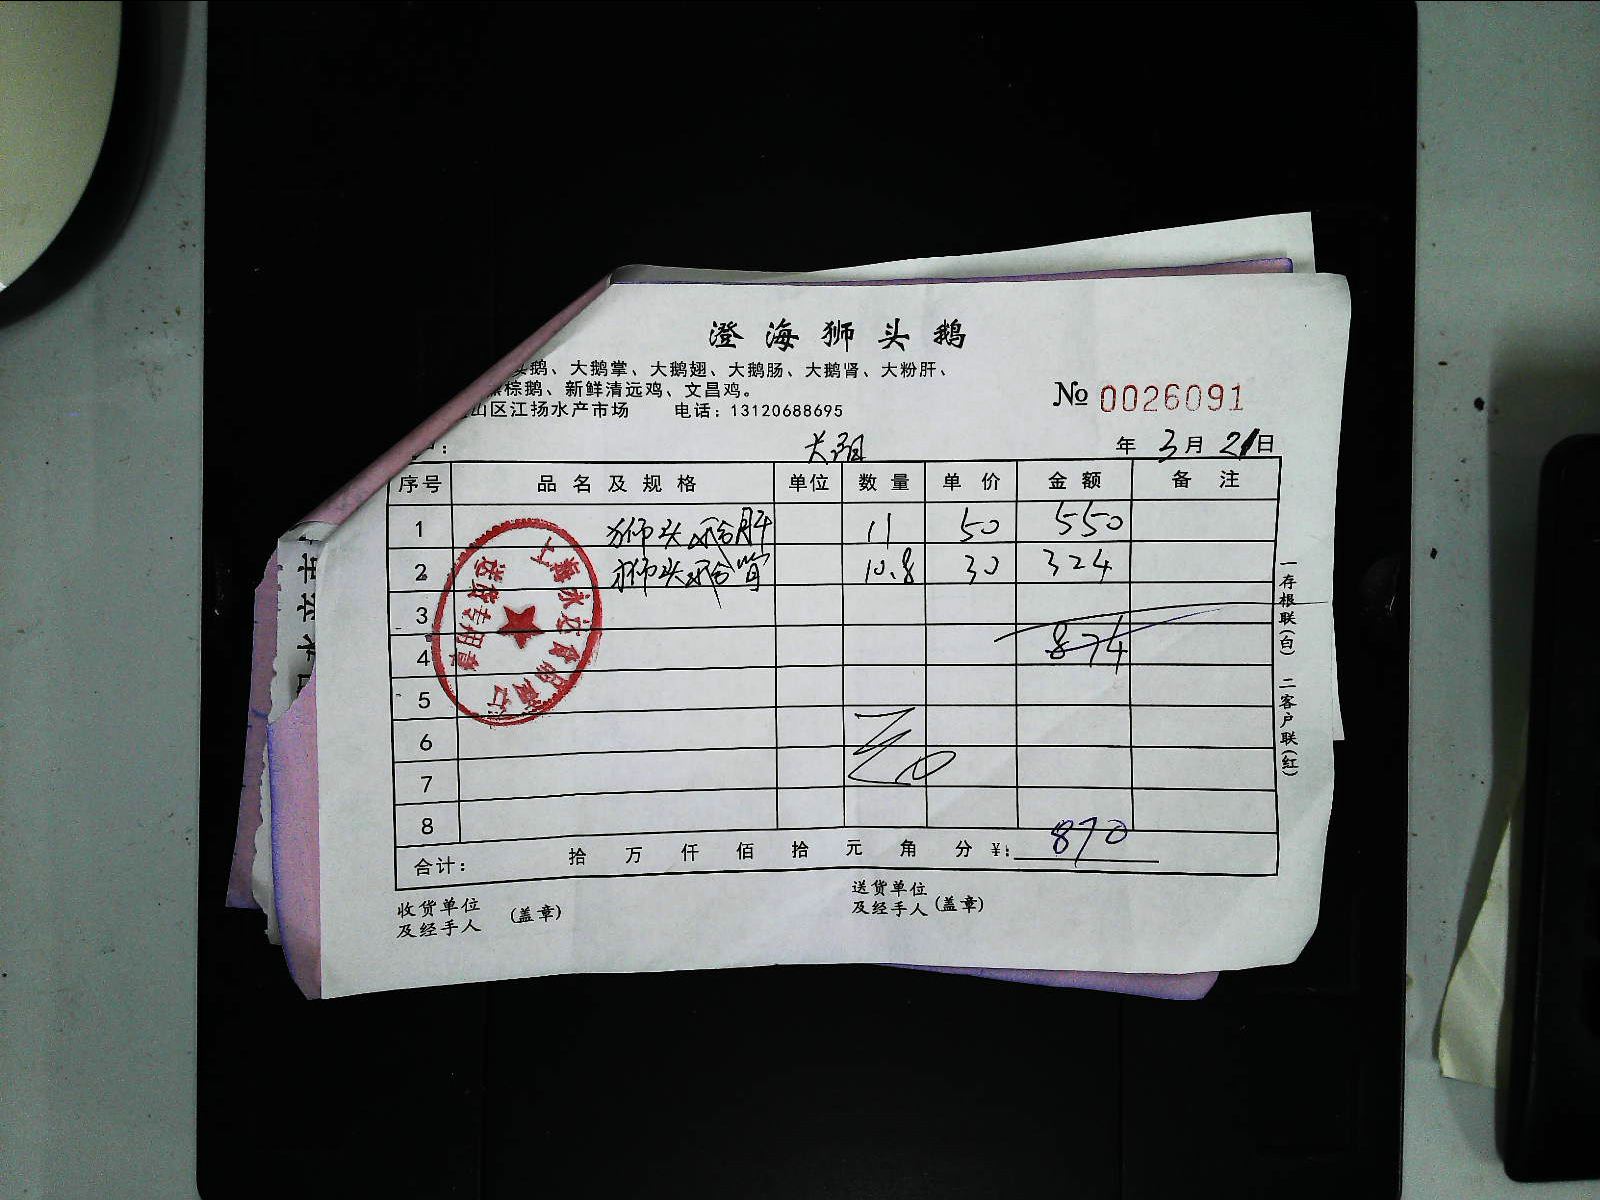 澄海狮头鹅
头鹅、大鹅掌、大鹅翅、大鹅肠、大鹅肾、大粉肝、
棕鹅、新鲜清远鸡、文昌鸡。
山区江扬水产市场 电话：13120688695
№ 0026091
年 3月 21日
序号 品名及规格 单位 数量 单价 金额 备注
1 狮头鹅肝 11 50 550
2 狮头鹅 10.8 30 324
3
4 874
5
6
7
8
合计： 拾 万 仟 佰 拾 元 角 分 ¥： 870
收货单位
及经手人 (盖章)
送货单位
及经手人 (盖章)
一存根联(白) 二客户联(红)
上海永达食品商行
送货专用章